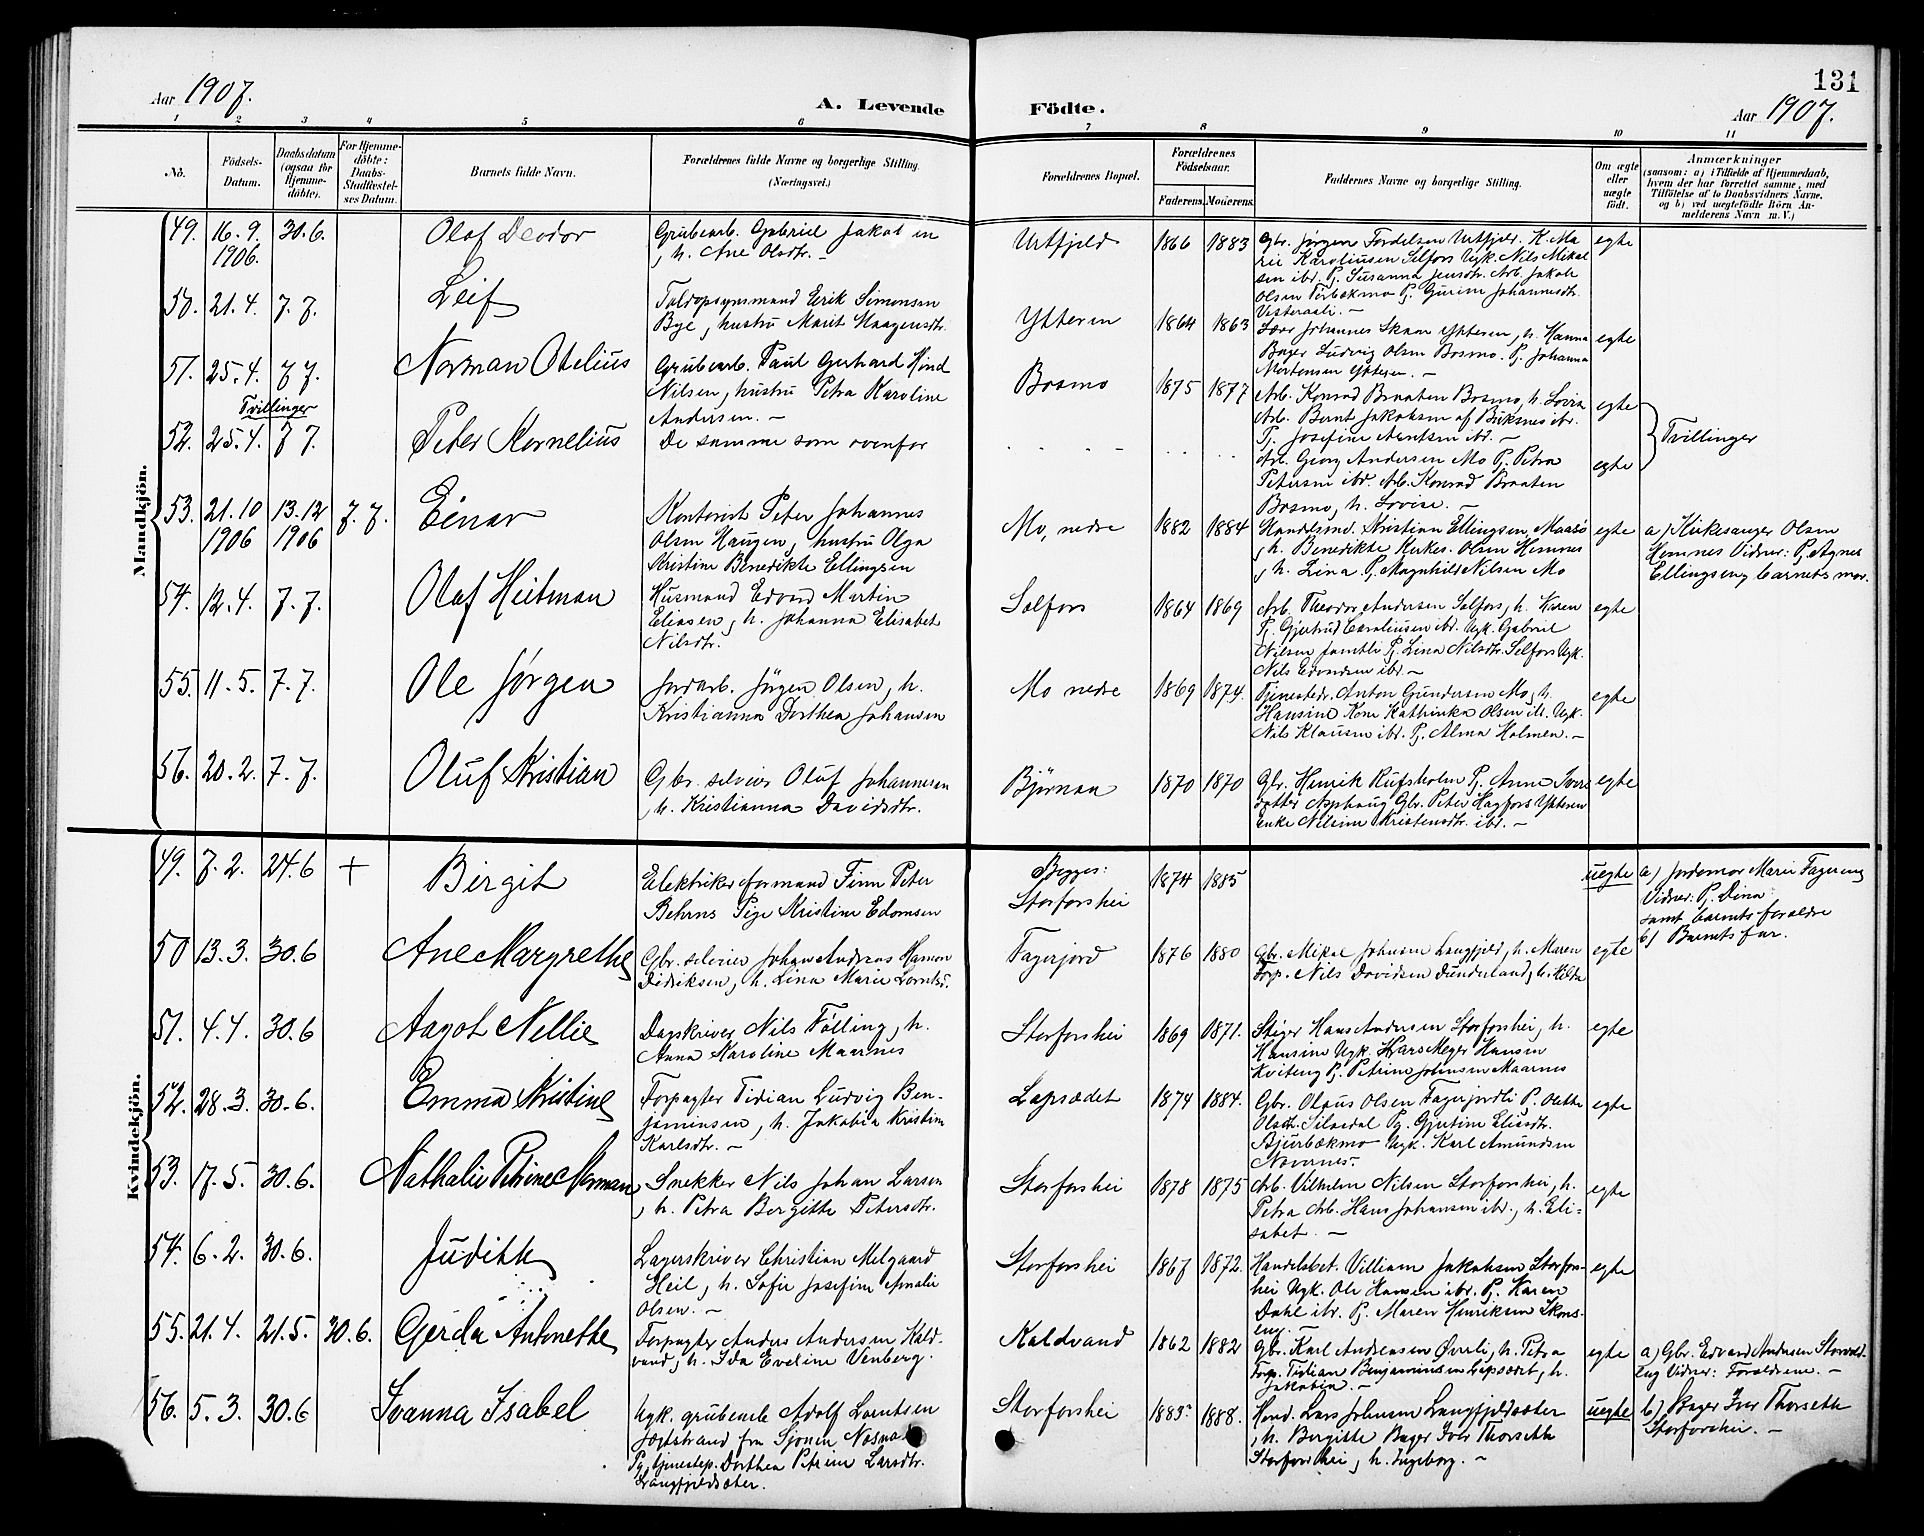 131
Aar 1907.
A. Levende Födte.
Aar 1907.
1 2 3 4 5 6 7 8 9 10 11
No.
Födsels-
Datum.
Daabsdatum
(ogsaa for
Hjemme-
döbte).
For Hjemme-
döbte:
Daabs-
Stadfæstel-
ses Datum.
Barnets fulde Navn.
Forældrenes fulde Navne og borgerlige Stilling.
(Næringsvei.)
Forældrenes Bopæl.
Forældrenes
Födselsaar.
Faderens. Moderens.
Faddernes Navne og borgerlige Stilling.
Om ægte
eller
uægte
født.
Anmærkninger
(saasom: a) i Tilfælde af Hjemmedaab,
hvem der har forrettet samme, med
Tilföielse af to Daabsvidners Navne,
og b) ved uegtefödte Börn An-
melderens Navn m. V.)
Mandkjön.
49. 16. 9. 1906. 30. 6.
Olaf Deodor
Grubearb. Gabriel Jakobsen
, h. Ane Olsdtr. –
Urtfjeld
1866 1883
Gbr. Jørgen Urtfjeld. K. Ma
rie Karoliusen Selfors Ugk. Nils Mikal
sen ibd. Pj. Susanna Jensdtr. Arb. Jakob
Olsen Pj. Gurine Johannesdtr.
Vesteraali. –
egte
50. 21. 4. 7. 7.
Leif
Toldopsynsmand Eerik Simonsen
Bye, hustru Marit Haagensdtr.
Ytteren
1864 1863
Johannes Skaar Ytteren, h. Hanna
Bager Ludvig Olsen Bosmo. Pj. Johanna
Mortensen Ytteren. –
egte
51. 25. 4. 7 7.
Tvillinger
Norman Otelius
Grubearb. Paul Gerhard Hind
Nilsen, hustru Petra Karoline
Andersen. –
Bosmo
1875 1877
Arb. Konrad Braaten Bosmo, h. Lovise
Arb. Bernt Jakobsen af Buksnes ibr.
Pj. Josefine Arntsen ibr. –
egte
Tvillinger
52. 25. 4. 7 7.
Peter Kornelius
De samme som ovenfor
Arb. Georg Andersen Mo Pj. Petra
Petersen ibr. Arb. Konrad Braaten
Bosmo, h. Lovise. –
egte
53. 21. 10 1906 13. 12 1906 7. 7.
Einar
Kontorist Peter Johannes
Olsen Haugen, hustru Olga
Kristine Benedikte Ellingsen
Mo, nedre
1882 1884
Handelsmd. Kristian Ellingsen Maasø
, h. Benedikte Kirkes. Olsen Hemnes
, h. Lina. Pj. Magnhild Nilsen Mo
egte
a) Kirkesanger Olsen
Hemnes Vidner: Pj. Agnes
Ellingsen, barnets mor.
54. 12. 4. 7. 7.
Olaf Heitman
Husmand Edvard Martin
Eliasen, h. Johanna Elisabet
Nilsdtr.
Selfors
1864 1869
Arb. Theodor Andersen Selfors, h. Karen
Pj. Gjertrud Caroliusen ibr. Ugk. Gabriel
Nilsen Jamtli Pj. Lina Nilsdtr. Selfors Ugk.
Nils Edvardsen ibr. –
egte
55. 11. 5. 7. 7.
Ole Jørgen
Jordarb. Jörgen Olsen, h.
Kristianna Dorthea Johansen
Mo nedre
1869 1874.
Tjenestedr. Anton Gundersen Mo, h.
Hansine Kone Kathinka Olsen ib. Ugk.
Nils Klausen ibr. Pj. Alma Holmen. –
egte
56. 20. 2. 7. 7.
Oluf Kristian
Gbr. selveier Oluf Johannesen
, h. Kristianna Davidsdtr.
Bjørnaa
1870 1870
Gbr. Henrik Rufsholm Pj. Anne Ivers
datter Asphaug Gbr. Peter Hagfors Ytteren
enke Nilsine Kristensdtr. ibr. –
egte
Kvindekjön.
49. 7. 2. 24. 6 +
Birgit
Elektrikerformand Finn Peter
Behrns Pige Kristine Edomsen
Begges:
Storforshei
1874 1885
uegte
a) Jordemor Marie Fagereng
Vidner: Pj. Dina
samt barnets forældre
b) Barnets far.
50 13. 3. 30. 6
Ane Margrethe
Gbr. selveier Johan Andreas Hamon
Didriksen, h. Lina Marie Lorntsd.
Fagerjord
1876 1880
Gbr. Mikal Johnsen Langfjeld, h. Maren
Forp. Nils Davidsen Dunderland, h. Hilda
egte
51. 4. 4. 30. 6
Aagot Nellie
Dagskriver Nils Følling, h.
Anna Karoline Maarnes
Storforshei
1869 1871.
Stiger Hans Andersen Storforshei, h.
Hansine Ugk. Hans Meyer Hansen
Kviteng Pj. Petrine Johnsen Maarnes
egte
52. 28. 3. 30. 6.
Emma Kristine
Forpagter Tidian Ludvig Ben-
jaminsen, h. Jakobia Kristine
Karlsdtr. –
Lapsædet
1874 1884.
Gbr. Olaus Olsen Fagerjordli P. Oletha
Olsdtr. Silsedal Pg. Gjertine Eliasdtr.
Bjurbækmo Ugk. Karl Amundsen
Nævernes.
egte
53. 17. 5. 30. 6.
Nathalie Petrine Norman
Snekker Nils Johan Larsen
, h. Petra Bergitte Petersdtr.
Storforshei
1878 1875
Arb. Vilhelm Nilsen Storforshei, h.
Petra Arb. Hans Johansen ibr., h. Eli-
sabet. –
egte
54. 6. 2. 30. 6.
Judith
Lagerskriver Christian Melgaard
Heil, h. Sofie Josefine Amalie
Olsen. –
Storforshei
1867 1872.
Handelsbet. Villiam Jakobsen Storfors-
hei Ugk. Ole Hansen ibr. Pj. Karen
Dahl ibr. Pj. Maren Henriksen Skons-
eng. –
egte
55. 21. 4. 21. 5. 30. 6.
Gerda Antonette
Forpagter Anders Andersen Kald-
vand, h. Ida Eveline Venberg.
Kaldvand
1862 1882
Gbr. Karl Andreasen Øverli, h. Petra
Forp. Tidian Benjaminsen Lapsædet, h.
Jakobia. –
egte
a) Gbr. Edvard Andersen Storvold-
eng Vidner: Forældrene. –
56. 5. 3. 30. 6
Ivanna Isabel
Ugk. grubearb Adolf Lorntsen
Jægtstrand fra Sjonen Nesna
Pg. tjenestep. Dorthea Petrine Larsdtr.
Langfjeldsæter.
Storforshei
1883. 1888.
Hmd. Lars Johnsen Langfjeldsæter
, h. Bergitte Bager Iver Thorseth
Storforshei, h. Ingeborg. –
uegte
b) Bager Iver Thorseth
Storforshei. –